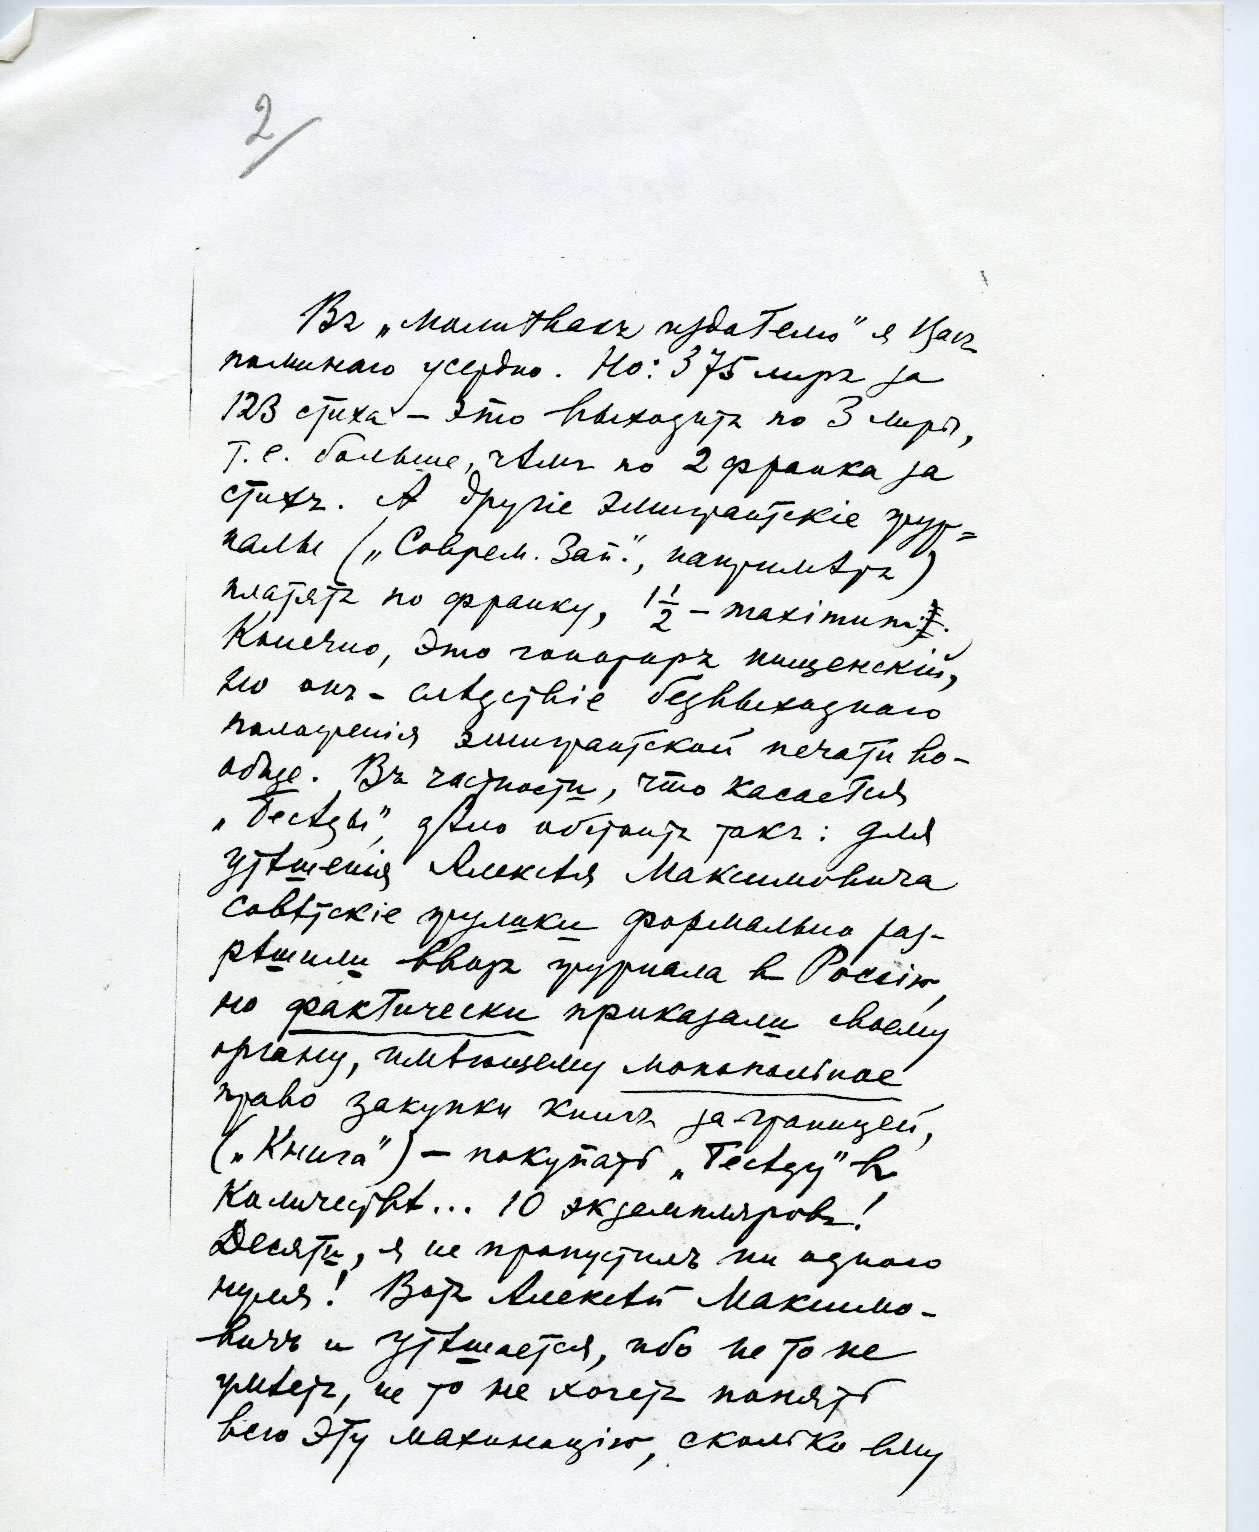 2/
Въ „молитвахъ издателю" я Васъ
поминаю усердно. Но: 375 лиръ за
123 стиха – это выходитъ по 3 лиры,
т.е. больше, чѣмъ по 2 франка за
стихъ. А другіе эмигрантскіе жур=
налы („Соврем. Зап.", напримѣръ)
платятъ по франку, 1½ – maximum.
Конечно, это гонораръ нищенскій,
но онъ – слѣдствіе безвыходнаго
положенія эмигрантской печати во-
обще. Въ частности, что касается
„Бесѣды", дѣло обстоитъ такъ: для
утѣшенія Алексѣя Максимовича
совѣтскіе жулики формально раз-
рѣшили ввозъ журнала въ Россію,
но фактически приказали своему
органу, имѣющему монопольное
право закупки книгъ за-границей,
(„Книга") – покупать „Бесѣду" въ
количествѣ... 10 экземпляровъ!
Десяти, я не пропустилъ ни одного
нуля! Вотъ Алексѣй Максимо-
вичъ и утѣшается, ибо не то не
умѣетъ, не то не хочетъ понять
всю эту махинацію, сколько ему